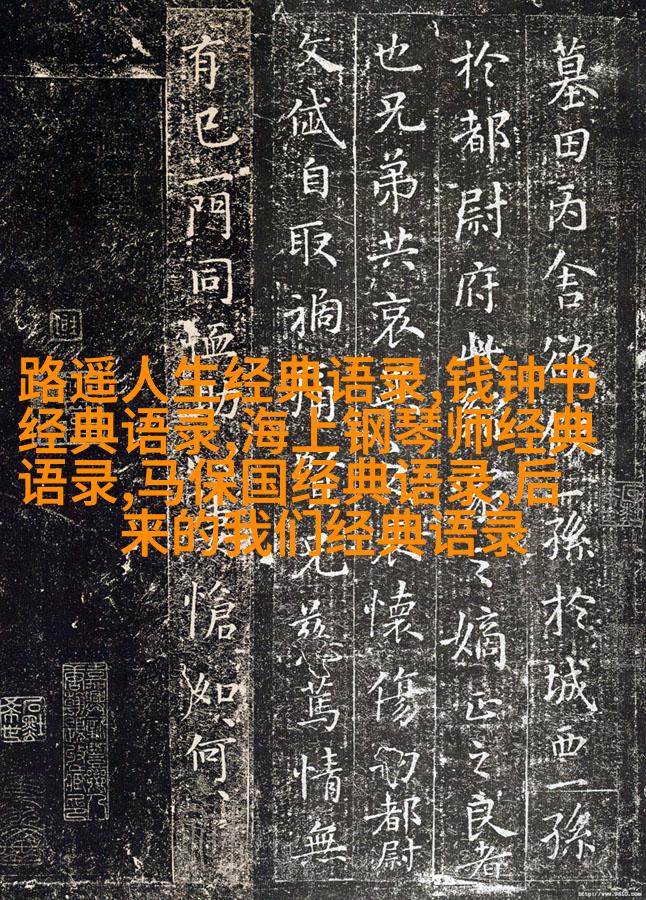 墓田丙舍欲一孫於城西一孫
於都尉府此家之嫡正之良者
也兄弟共哀懷傷切都尉
文岱自取禍痛兄慈篤情無
有已一門同恤愴如何
路遥人生经典语录,钱钟书
经典语录,海上钢琴师经典
语录,马保国经典语录,后
来的我们经典语录
http://www.9610.com